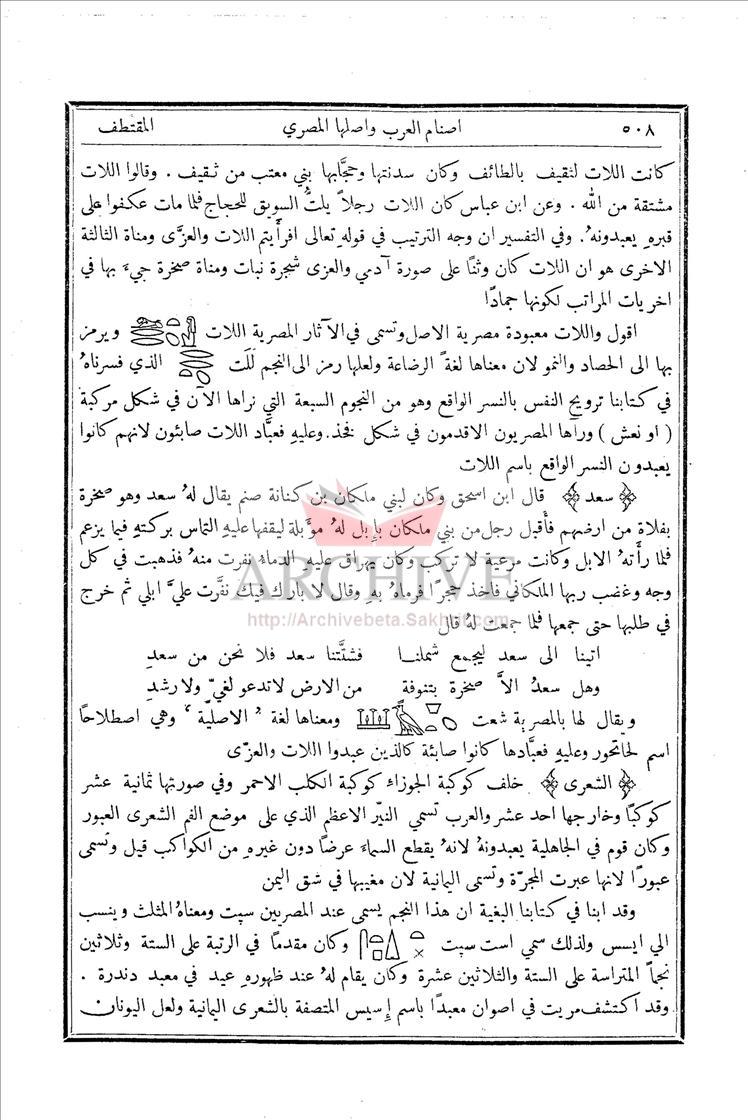 ٥٠٨ اصنام العرب واصلها المصري المقتطف
كانت اللات لثقيف بالطائف وكان سدنتها وحجَّابها بني معتب من ثقيف . وقالوا اللات
مشتقة من الله . وعن ابن عباس كان اللات رجلاً يلتُّ السويق للحجاج فلما مات عكفوا على
قبرهِ يعبدونهُ . وفي التفسير ان وجه الترتيب في قوله تعالى افرأَيتم اللات والعزَّى ومناة الثالثة
الاخرى هو ان اللات كان وثنًا على صورة آدمي والعزى شجرة نبات ومناة صخرة جيءَ بها في
اخريات المراتب لكونها جمادًا
اقول واللات معبودة مصرية الاصل وتسمى في الآثار المصرية اللات ويرمز
بها الى الحصاد والنمو لان معناها لغةً الرضاعة ولعلها رمز الى النجم لَلَت الذي فسرناهُ
في كتابنا ترويح النفس بالنسر الواقع وهو من النجوم السبعة التي نراها الآن في شكل مركبة
( او نعش ) ورآها المصريون الاقدمون في شكل فخذ. وعليهِ فعبَّاد اللات صابئون لانهم كانوا
يعبدون النسر الواقع باسم اللات
﴿ سعد ﴾ قال ابن اسحق وكان لبني ملكان بن كنانة صنم يقال لهُ سعد وهو صخرة
بفلاة من ارضهم فأقبل رجل من بني ملكان بإبل لهُ مؤبلة ليقفها عليهِ التماس بركتهِ فيما يزعم
فلما رأَتهُ الابل وكانت مرعية لا تركب وكان يهراق عليهِ الدماءُ نفرت منهُ فذهبت في كل
وجه وغضب ربها الملكاني فأخذ حجرًا فرماهُ بهِ وقال لا بارك فيك نفَّرت عليَّ ابلي ثم خرج
في طلبها حتى جمعها فلما جمعت لهُ قال
ARCHIVE
http://Archivebeta.Sakhrit.com
اتينا الى سعد ليجمع شملنا فشتَّتنا سعد فلا نحن من سعدِ
وهل سعدُ الاَّ صخرة بتنوفة من الارض لا تدعو لغيّ ولا رشدِ
ويقال لها بالمصرية شعت ومعناها لغة "الاصلية" وهي اصطلاحًا
اسم لحاتحور وعليهِ فعبَّادها كانوا صابئة كالذين عبدوا اللات والعزّى
﴿ الشعرى ﴾ خلف كوكبة الجوزاءِ كوكبة الكلب الاحمر وفي صورتها ثمانية عشر
كوكبًا وخارجها احد عشر والعرب تسمي النيّر الاعظم الذي على موضع الفم الشعرى العبور
وكان قوم في الجاهلية يعبدونهُ لانهُ يقطع السماءَ عرضًا دون غيرهِ من الكواكب قيل وتسمى
عبورًا لانها عبرت المجرّة وتسمى اليمانية لان مغيبها في شق اليمن
وقد ابنا في كتابنا البغية ان هذا النجم يسمى عند المصريين سپت ومعناهُ المثلث وينسب
الي ايسس ولذلك سمي است سپت وكان مقدمًا في الرتبة على الستة وثلاثين
نجمًا المتراسة على الستة والثلاثين عشرة وكان يقام لهُ عند ظهورهِ عيد في معبد دندرة .
وقد اكتشف مريت في اصوان معبدًا باسم إِسيس المتصفة بالشعرى اليمانية ولعل اليونان